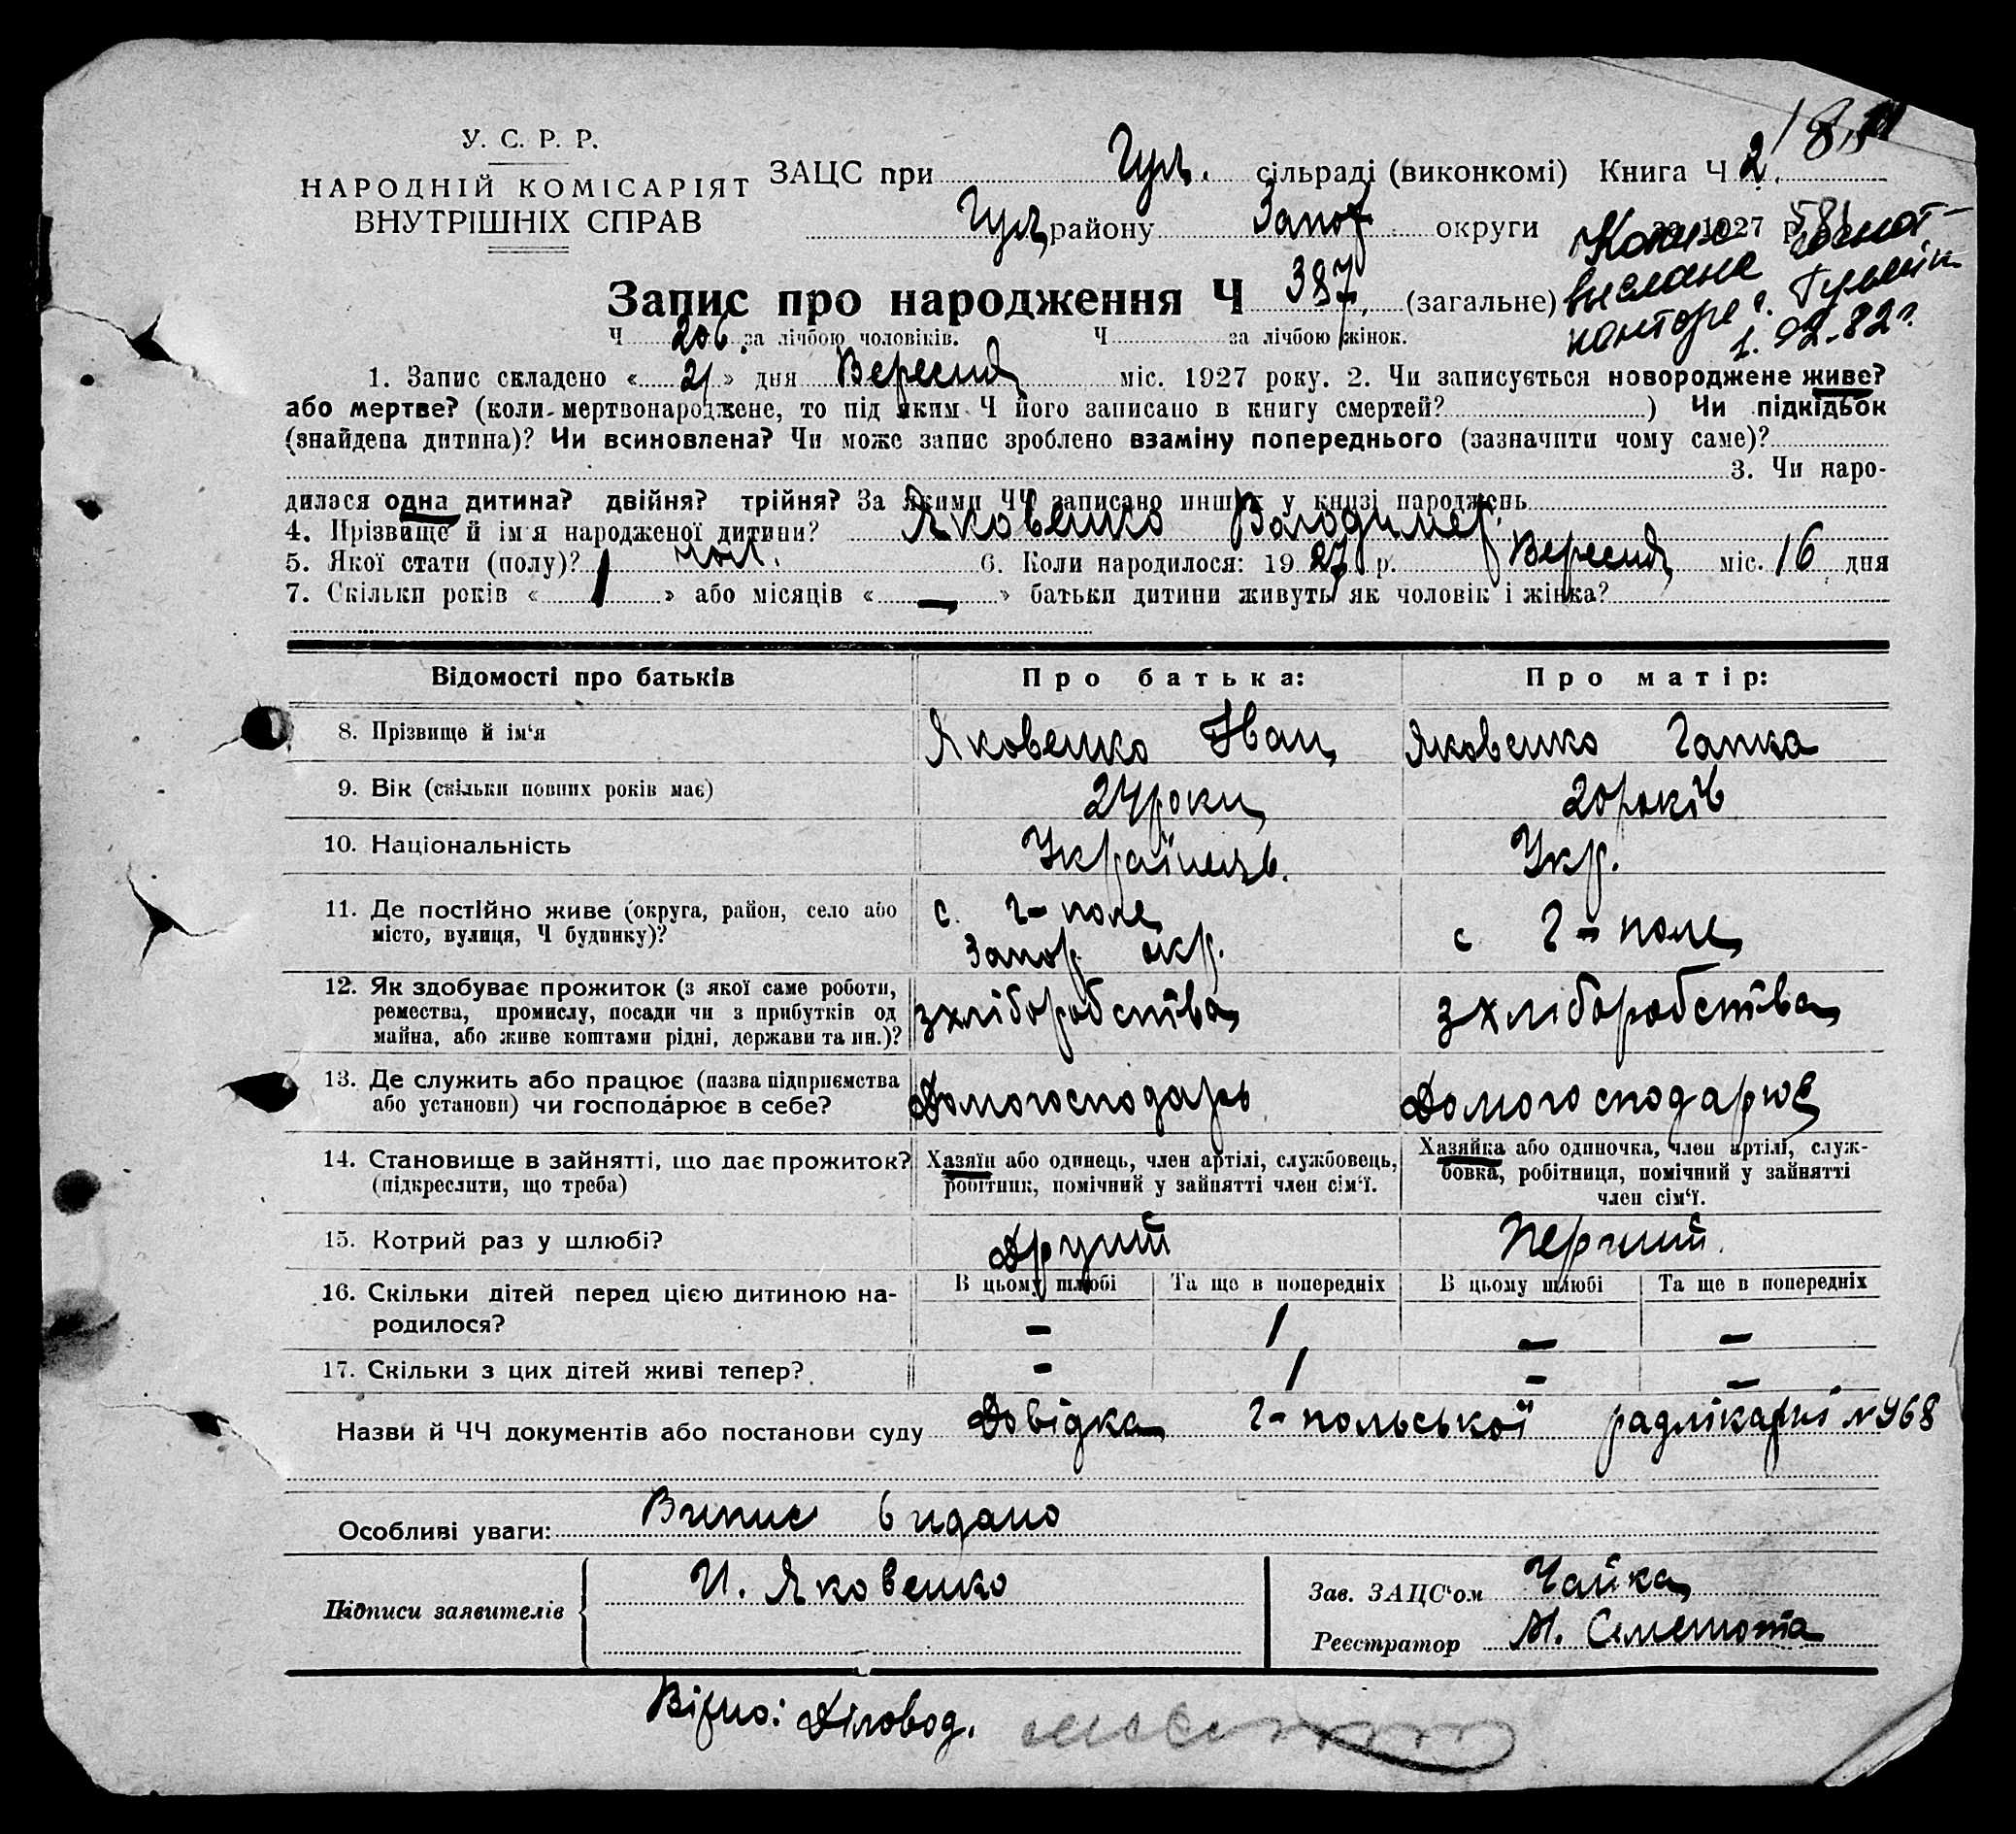 У. С. Р. Р.
НАРОДНІЙ КОМІСАРІЯТ
ВНУТРІШНІХ СПРАВ
ЗАЦС при Гул. сільраді (виконкомі) Книга Ч 2.
Гул. району Запор. округи за 1927 р.
Копия
выслана
конторе г. Гуляй
1.02.82 г.
Запис про народження Ч 387 (загальне)
Ч 206. за лічбою чоловіків. Ч за лічбою жінок.
1. Запис складено « 21 » дня Вересня міс. 1927 року. 2. Чи записується новороджене живе?
або мертве? (коли-мертвонароджене, то під яким Ч його записано в книгу смертей? ) Чи підкідьок
(знайдена дитина)? Чи всиновлена? Чи може запис зроблено взаміну попереднього (зазначити чому саме)?
3. Чи наро-
дилася одна дитина? двійня? трійня? За якими ЧЧ записано инших у книзі народжень
4. Прізвище й ім'я народженої дитини? Яковенко Володимер.
5. Якої стати (полу)? чол. 6. Коли народилося: 1927 р. Вересня міс. 16 дня
7. Скільки років « 1 » або місяців « — » батьки дитини живуть як чоловік і жінка?
Відомості про батьків Про батька: Про матір:
8. Прізвище й ім'я Яковенко Іван Яковенко Гапка
9. Вік (скільки повних років має) 24 роки 20 років
10. Національність Українець. Укр.
11. Де постійно живе (округа, район, село або місто, вулиця, Ч будинку)? с. Г-поле Запор. окр. с Г-поле
12. Як здобуває прожиток (з якої саме роботи, ремества, промислу, посади чи з прибутків од майна, або живе коштами рідні, держави та ин.)? з хліборобства з хліборобства
13. Де служить або працює (назва підприємства або установи) чи господáрює в себе? Домогосподарь Домогосподарює
14. Становище в зайнятті, що дає прожиток? (підкреслити, що треба) Хазяїн або одинець, член артілі, службовець, робітник, помічний у зайнятті член сім'ї. Хазяйка або одиночка, член артілі, служ-
бовка, робітниця, помічний у зайнятті член сім'ї.
15. Котрий раз у шлюбі? Другий Перший.
16. Скільки дітей перед цією дитиною на-
родилося? В цьому шлюбі Та ще в попередніх В цьому шлюбі Та ще в попередніх
— 1 — —
17. Скільки з цих дітей живі тепер? — 1 — —
Назви й ЧЧ документів або постанови суду Довідка Г-польської радлікарні № 468
Особливі уваги: Випис видано
Підписи заявителів И. Яковенко
Зав. ЗАЦС'ом Чайка
Реєстратор
Вірно: Діловод.